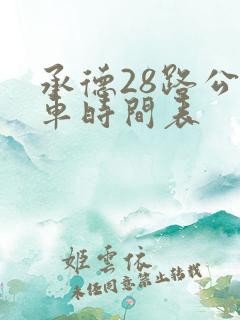 承德28路公
車時間表
姬雲依
未任同意禁止转载